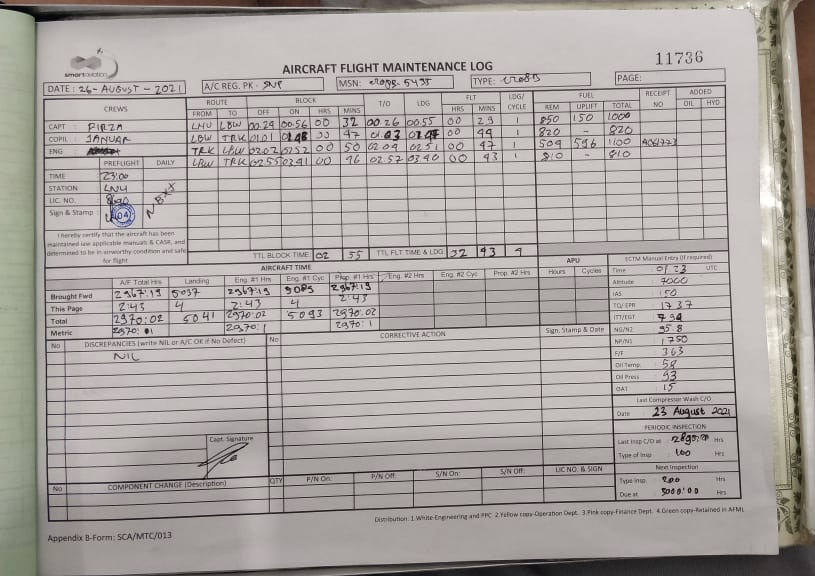 smartaviation
AIRCRAFT FLIGHT MAINTENANCE LOG
11736
DATE : 26 - AUGUST - 2021
A/C REG. PK - SNP
MSN:
TYPE:
PAGE:
CREWS ROUTE BLOCK T/O LDG FLT LDG/ CYCLE FUEL RECEIPT NO ADDED
FROM TO OFF ON HRS MINS HRS MINS REM UPLIFT TOTAL OIL HYD
CAPT : PIRZA LNU LBW 00.24 00.56 00 32 00.26 00.55 00 29 1 850 150 1000
COPIL : JANUAR LBW TRK 01.01 01.48 00 47 01.03 01.47 00 44 1 820 - 820
ENG TRK LBW 02.02 02.52 00 50 02.04 02.51 00 47 1 504 596 1100
LBW TRK 02.55 03.41 00 46 02.57 03.40 00 43 1 810 - 810
PREFLIGHT DAILY
TIME 23:00
STATION LNU
LIC. NO.
Sign & Stamp
I hereby certify that the aircraft has been
maintained use applicable manuals & CASR, and
determined to be in airworthy condition and safe
for flight
TTL BLOCK TIME 02 55 TTL FLT TIME & LDG 02 43 4
AIRCRAFT TIME
APU
ECTM Manual Entry (If required)
A/F Total Hrs Landing Eng. #1 Hrs Eng. #1 Cyc Prop. #1 Hrs Eng. #2 Hrs Eng. #2 Cyc Prop. #2 Hrs Hours Cycles
Brought Fwd 2967:19 5037 2967:19 5089 2967:19
This Page 2:43 4 2:43 4 2:43
Total 2970:02 5041 2970:02 5093 2970:02
Metric 2970.1 2970.1
Time : 01 23 UTC
Altitude : 7000
IAS : 150
TQ/EPR : 1737
ITT/EGT
NG/N2 : 95.8
NP/N1 : 1750
F/F : 363
Oil Temp : 58
Oil Press : 93
OAT : 15
No DISCREPANCIES (write NIL or A/C OK if No Defect)
NIL
No CORRECTIVE ACTION Sign. Stamp & Date
Last Compressor Wash C/O
Date : 23 August 2021
PERIODIC INSPECTION
Last Insp C/O at : Hrs
Type of Insp : 100 Hrs
Next Inspection
Type Insp. : 200 Hrs
Due at : 3000:00 Hrs
Capt. Signature
No COMPONENT CHANGE (Description) QTY P/N On: P/N Off: S/N On: S/N Off: LIC NO. & SIGN
Distribution: 1.White-Engineering and PPC 2.Yellow copy-Operation Dept. 3.Pink copy-Finance Dept. 4.Green copy-Retained in AFML
Appendix B-Form: SCA/MTC/013